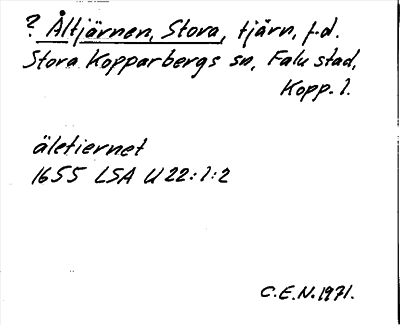 ? Åltjärnen, Stora, tjärn, f.d.
Stora Kopparbergs sn, Falu stad,
Kopp. l.
äletiernet
1655 LSA U22:1:2
C.E.N. 1971.